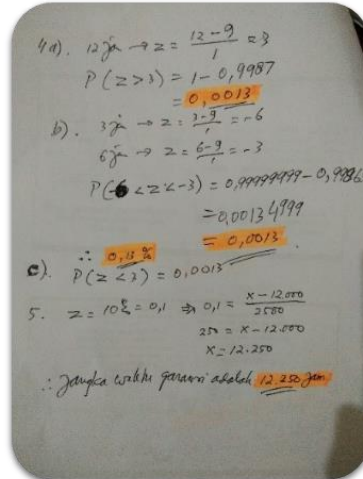 4a). 12 jam → z = 12-9/1 = 3
P(z>3) = 1-0,9987
= 0,0013
b). 3 jam → z = 3-9/1 = -6
6 jam → z = 6-9/1 = -3
P(-6<z<-3) = 0,99999999-0,9986
= 0,00134999
= 0,0013
∴ 0,13 %
c). P(z<3) = 0,0013
5. z = 10% = 0,1 ⇒ 0,1 = x-12.000/2500
250 = x-12.000
x = 12.250
∴ Jangka waktu garansi adalah 12.250 jam